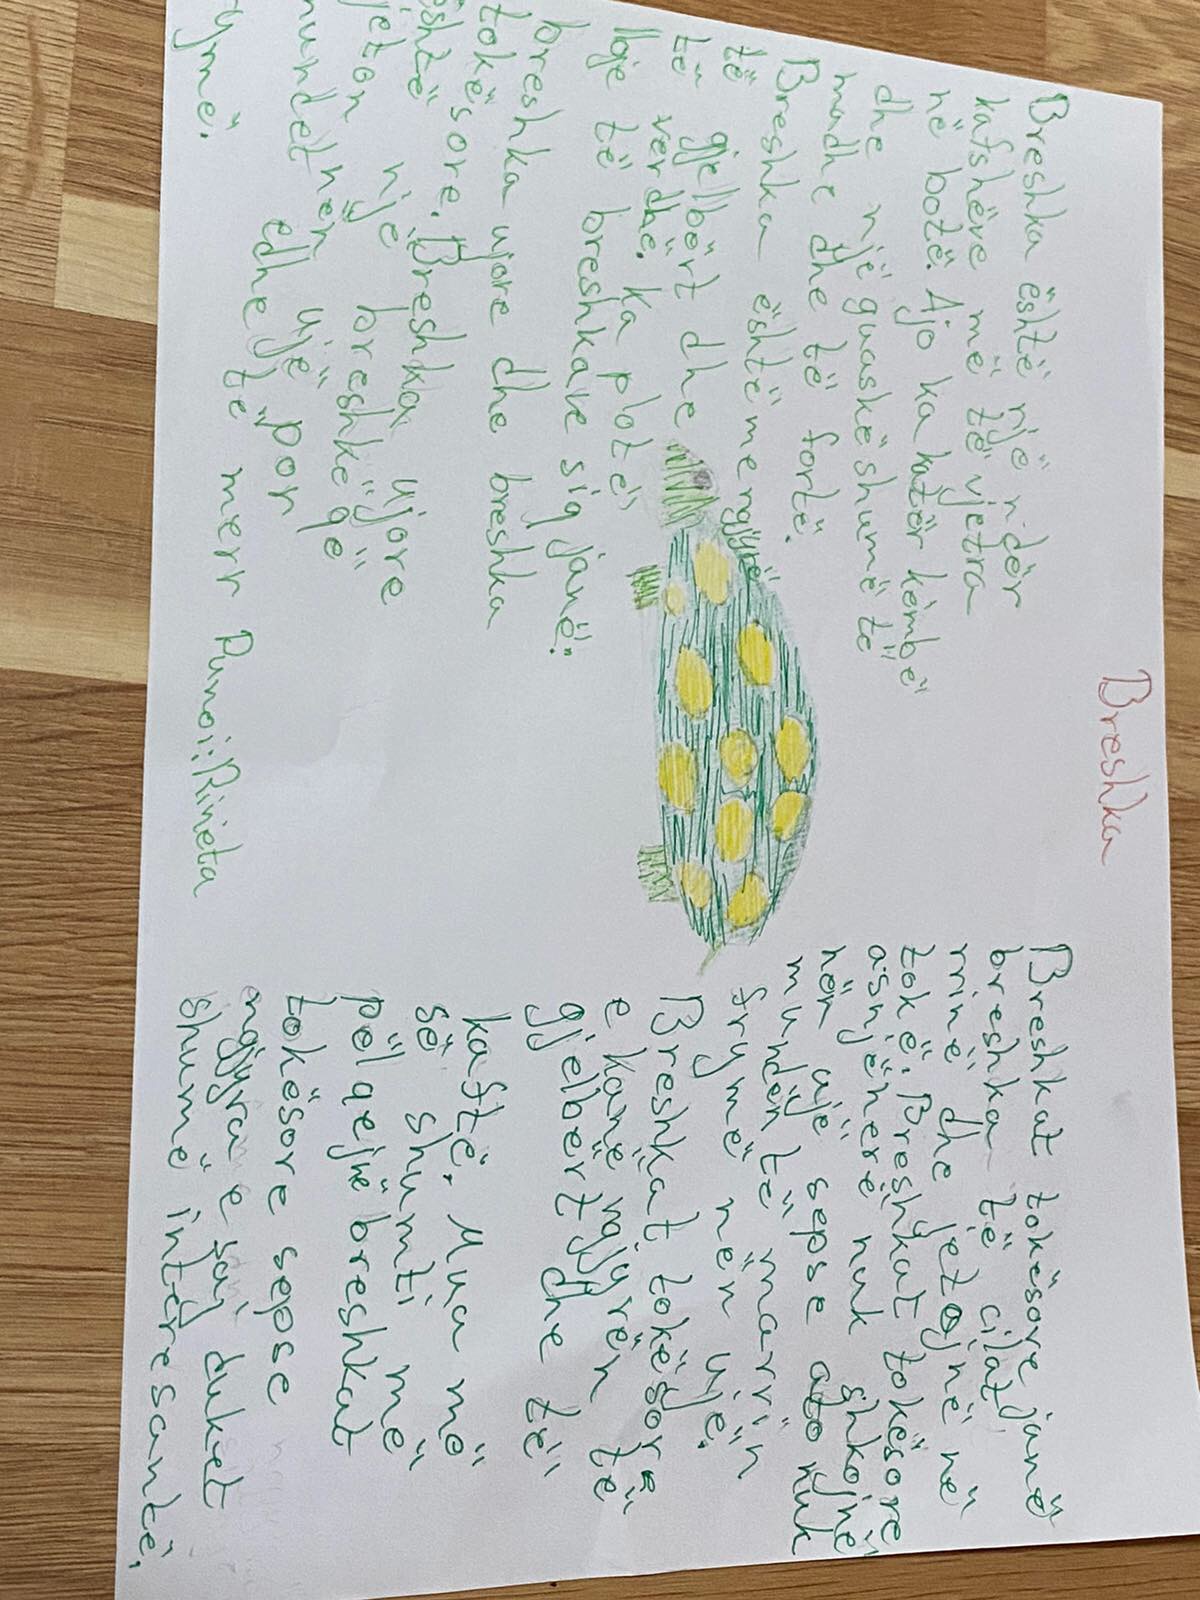 Breshka
Breshka është një ndër
kafshëve më të vjetra
në botë. Ajo ka katër këmbë
dhe një guaskë shumë të
madhe dhe të fortë.
Breshka është me ngjyrë
të gjelbërt dhe
të verdhë. ka plotë
lloje të breshkave siq janë:
breshka ujore dhe breshka
tokësore. Breshka ujore
është një breshkë qe
jeton
mundet nën ujë por
edhe të merr
frymë.
Punoi: Rinieta
Breshkat tokësore janë
breshka të cilat
rrinë dhe jetojnë në
tokë. Breshkat tokësore
asnjëherë nuk shkojnë
nër ujë sepse ato nuk
munden të marrin
frymë nën ujë.
Breshkat tokësore
e kanë ngjyrën të
gjelbert dhe të
kaftë. Mua më
së shumti më
pëlqejnë breshkat
tokësore sepse
ngjyra e saj duket
shumë interesantë.